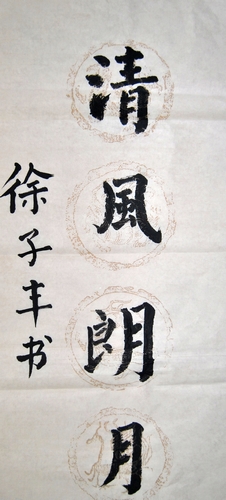 清風朗月
徐子丰书